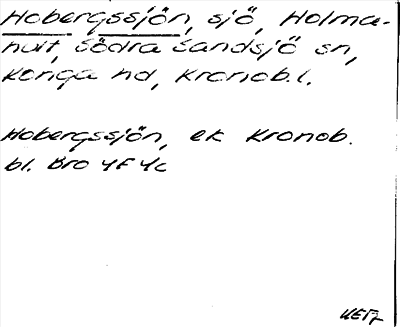 Hobergssjön, sjö, Holma-
hult, Södra Sandsjö sn,
Konga hd, Kronob. l.
Hobergssjön, ek Kronob.
bl. Bro 4F 4c